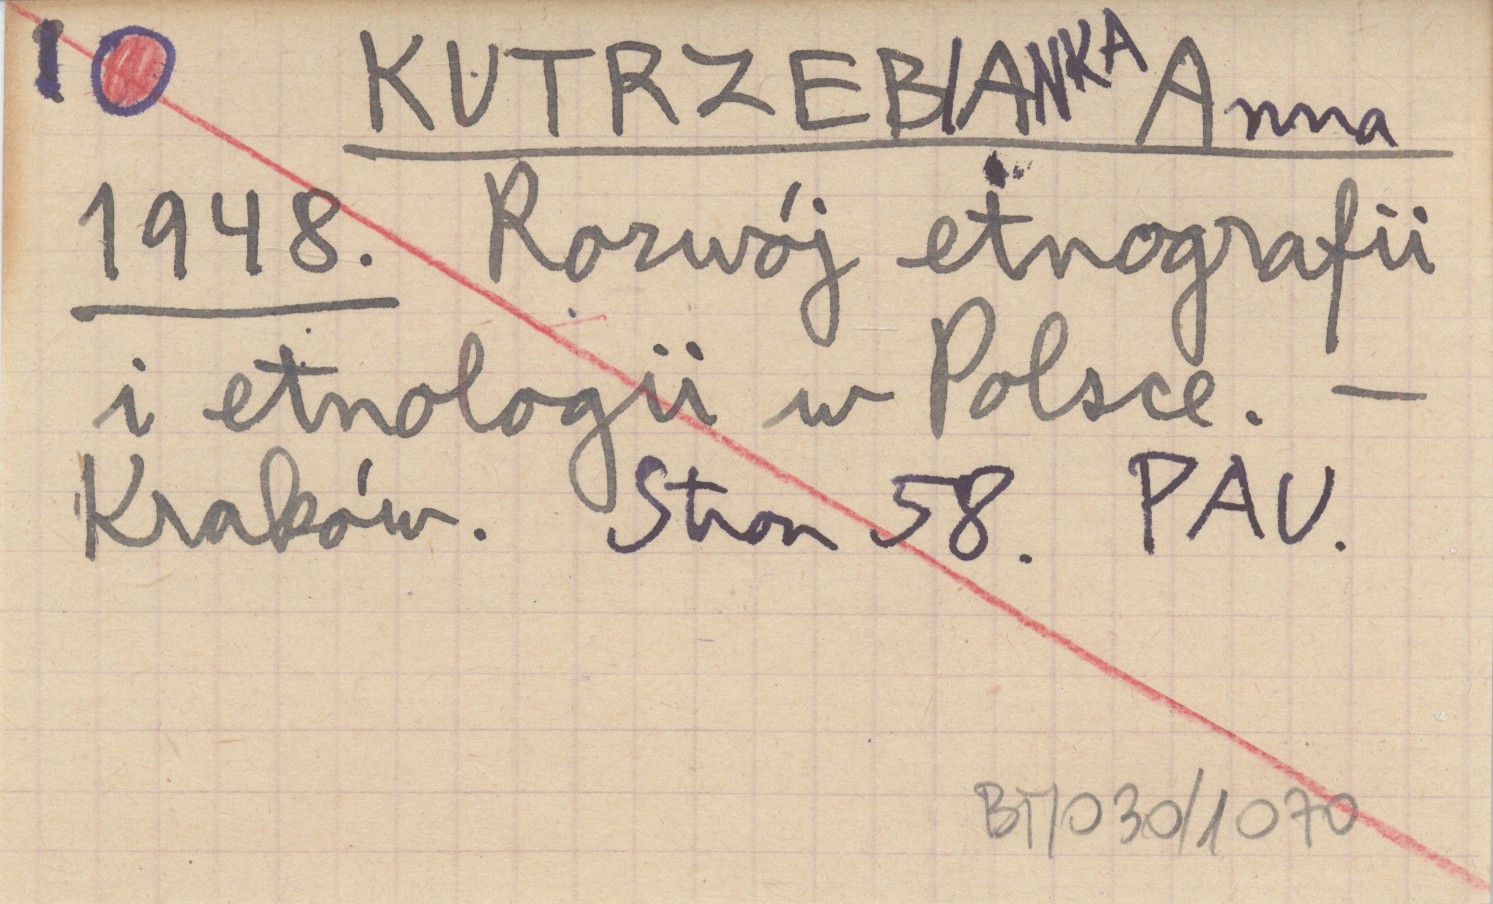 10 KUTRZEBIANKA Anna
1948. Rozwój etnografii
i etnologii w Polsce. —
Kraków. Stron 58. PAU.
BT/030/1070